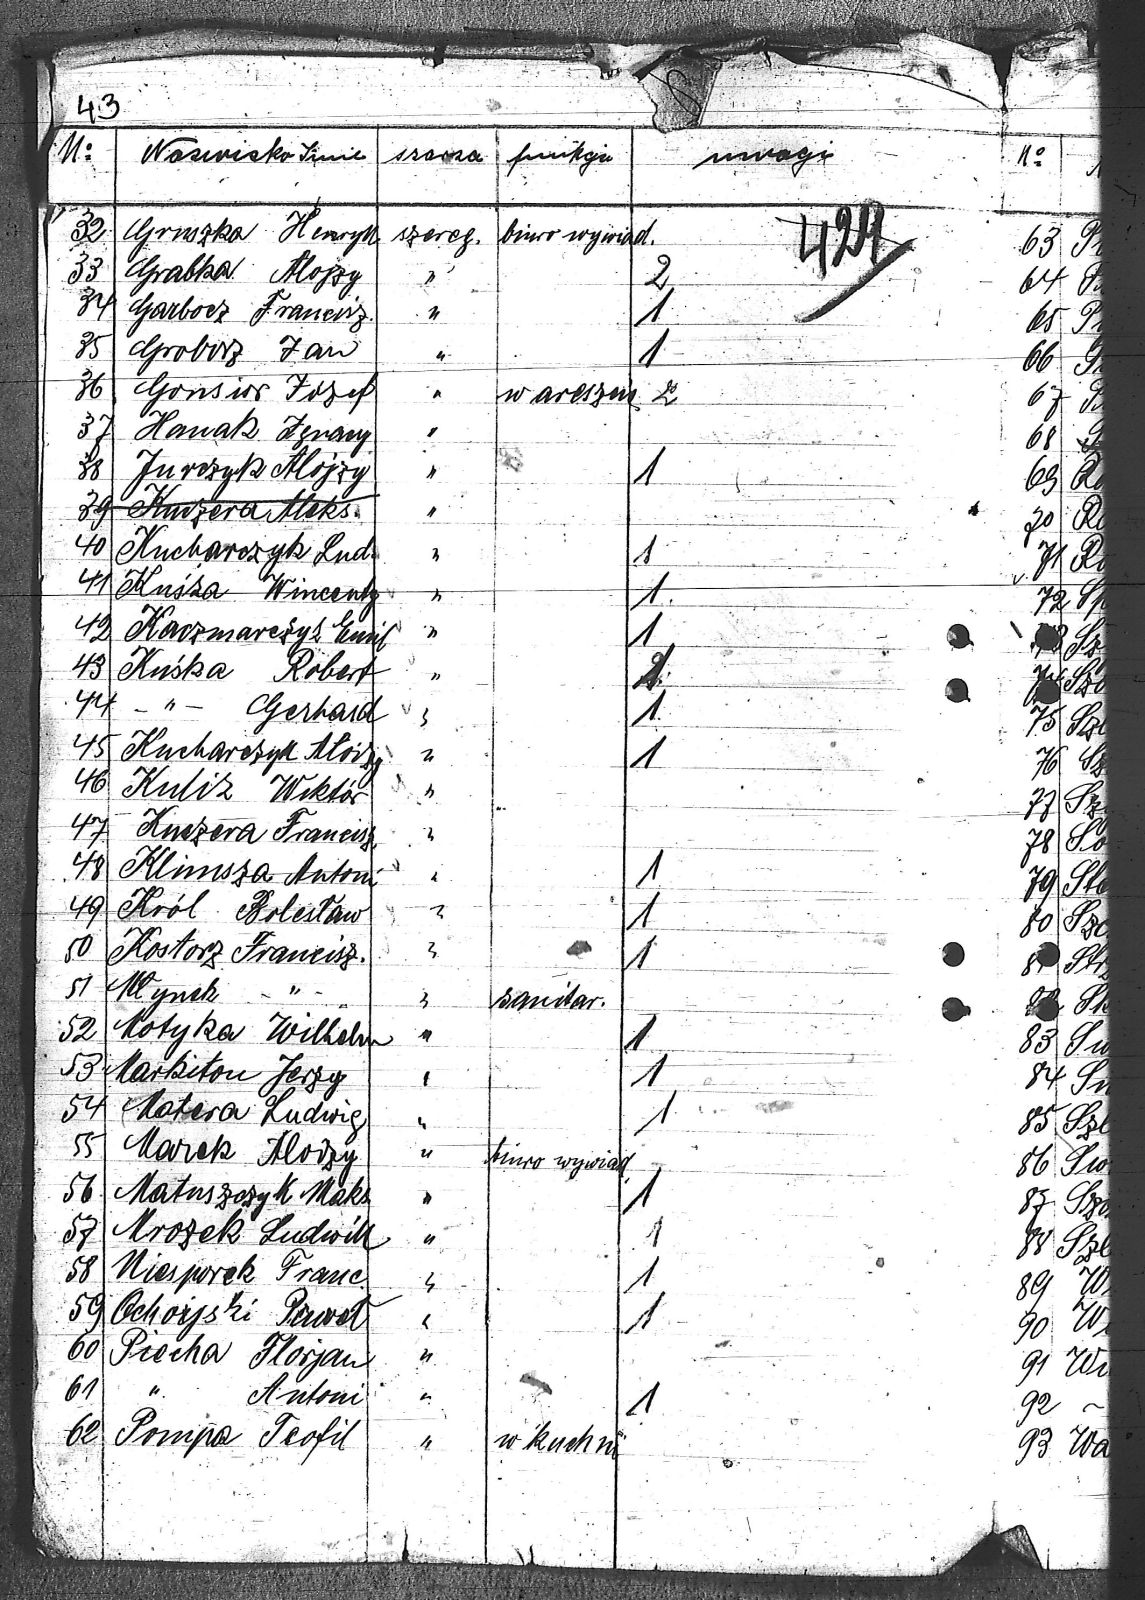 43
No Nazwisko Imie szarza funkcja uwagi No
32 Gruszka Henryk szereg. biuro wywiad. 424
33 Grabka Alojzy " 2
34 Garbocz Francisz. " 1
35 Grobosz Jan " 1
36 Gonsior Józef " w areszcie 2
37 Hanak Ignacy "
38 Jurczyk Alojzy " 1
39 Kuczera Aleks. "
40 Kucharczyk Lud. " 1
41 Kuśza Wincenty " 1.
42 Kaczmarczyk Emil " 1
43 Kuśka Robert "
44 - " - Gerhard " 1.
45 Kucharczyk Alojzy " 1
46 Kuliz Wiktór "
47 Kuczera Francisz. "
48 Klimsza Antoni " 1
49 Król Bolesław " 1
50 Kostorz Francisz. " 1
51 Młynek - " - " sanitar.
52 Motyka Wilhelm " 1
53 Markiton Jerzy " 1
54 Matera Ludwig " 1
55 Marek Alojzy " biuro wywiad.
56 Matuszczyk Maks " 1
57 Mrozek Ludwik " 1
58 Niesporek Franc " 1
59 Ochojski Paweł " 1
60 Piecha Florjan "
61 " Antoni " 1
62 Pompa Teofil " w kuchni
63
64
65
66
67
68
69
70
71
72
75
76
77
78
79
80
83
84
85
86
87
88
89
90
91
92
93 Wa